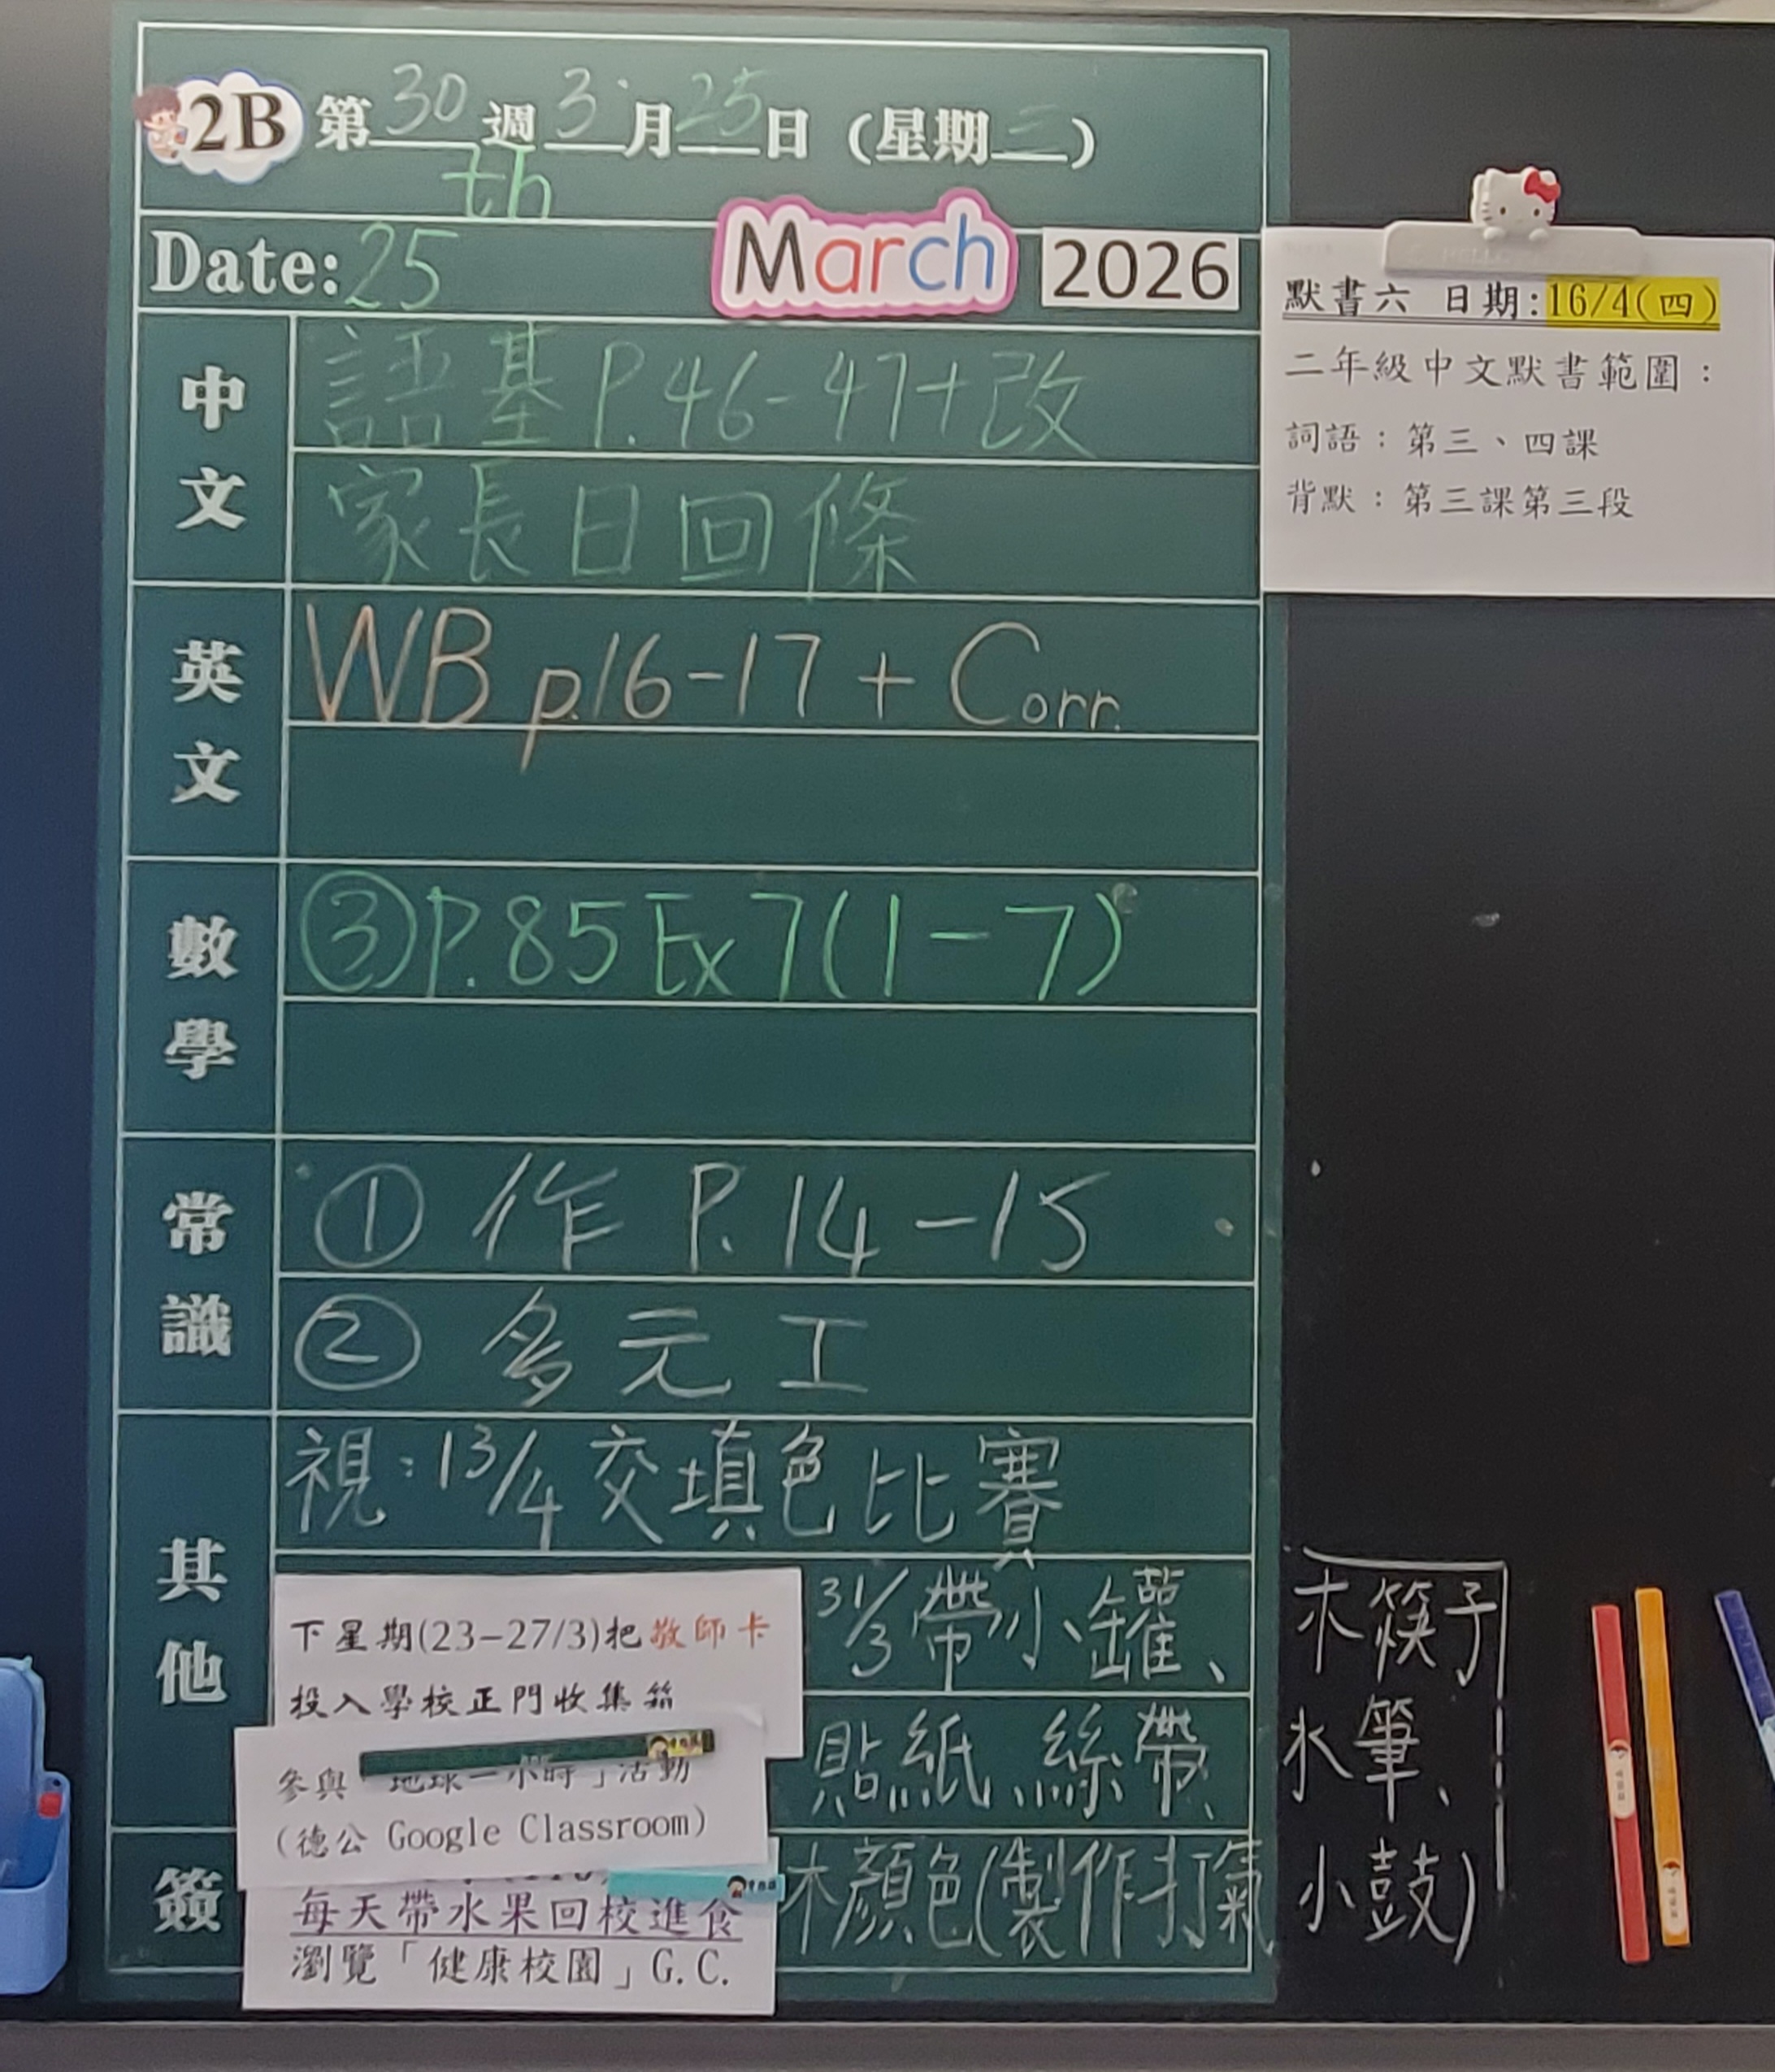 2B 第30週3月25日 (星期三)
th
Date: 25 March 2026
中文
語基 P.46-47+改
家長日回條
英文
WB p.16-17 + Corr.
數學
③P.85 Ex 7(1-7)
常識
① 作 P.14-15
② 多元工
其他
視:13/4交填色比賽
31/3帶小罐、木筷子
貼紙、絲帶、水筆、
木顏色(製作打氣小鼓)
簽
下星期(23-27/3)把敬師卡
投入學校正門收集箱
參與「地球一小時」活動
(德公 Google Classroom)
每天帶水果回校進食
瀏覽「健康校園」G.C.
默書六 日期:16/4(四)
二年級中文默書範圍:
詞語:第三、四課
背默:第三課第三段